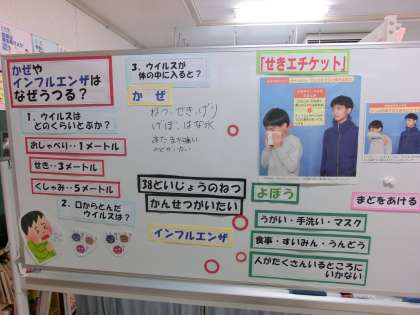 かぜや
インフルエンザは
なぜうつる？
1．ウイルスは
どのくらいとぶか？
おしゃべり‥1メートル
せき‥3メートル
くしゃみ‥5メートル
2．口からとんだ
ウイルスは？
3．ウイルスが
体の中に入ると？
かぜ
ねつ、せき、げり
げぼ、はな水
あたまが痛い
38どいじょうのねつ
かんせつがいたい
インフルエンザ
「せきエチケット」
よぼう
まどをあける
うがい・手洗い・マスク
食事・すいみん・うんどう
人がたくさんいるところに
いかない